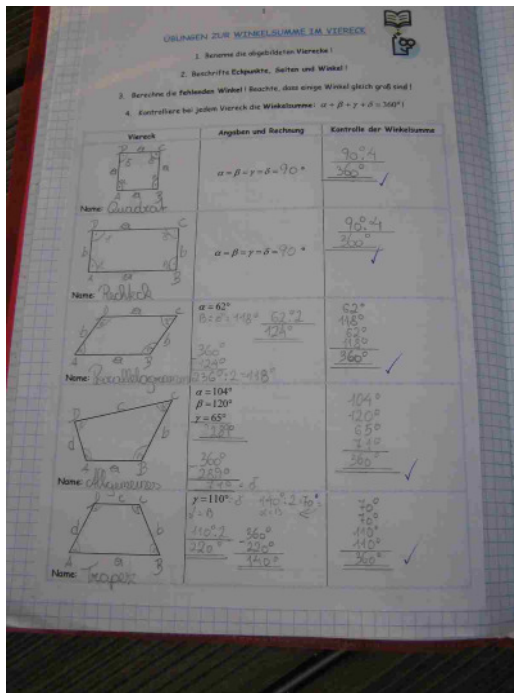 ÜBUNGEN ZUR WINKELSUMME IM VIERECK
1. Benenne die abgebildeten Vierecke!
2. Beschrifte Eckpunkte, Seiten und Winkel!
3. Berechne die fehlenden Winkel! Beachte, dass einige Winkel gleich groß sind!
4. Kontrolliere bei jedem Viereck die Winkelsumme: α + β + γ + δ = 360°!
Viereck Angaben und Rechnung Kontrolle der Winkelsumme
D a C
a δ a
A a B
α = β = γ = δ = 90°
90°·4
360°
Name: Quadrat
D a C
b b
A a B
α = β = γ = δ = 90°
90°·4
360°
Name: Rechteck
C
b b
A a B
α = 62°
62°·2
124°
360°
124°
236°:2=118°
62°
118°
62°
118°
360°
Name: Parallelogramm
D c C
d b
A a B
α = 104°
β = 120°
γ = 65°
289°
360°
289°
71° = δ
104°
120°
65°
71°
360°
Name: Allgemeines
c C
A a B
γ = 110° = δ
110°·2
220°
360°
220°
140°
140°:2=70°
70°
70°
110°
110°
360°
Name: Trapez